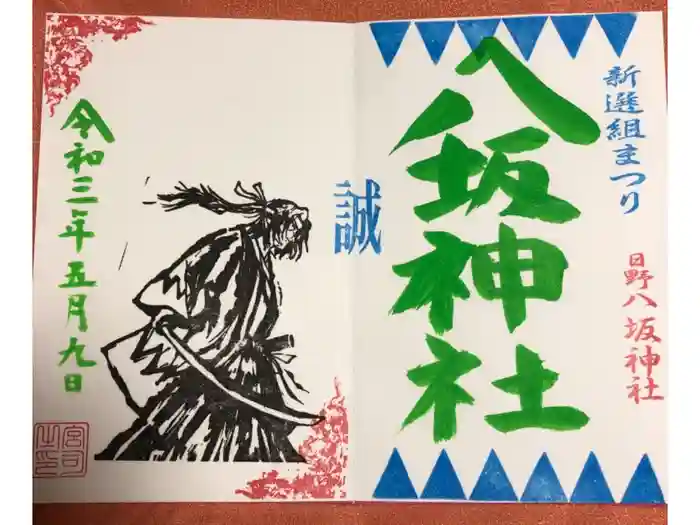 新選組まつり
日野八坂神社
八坂神社
誠
令和三年五月九日
宮司
之印